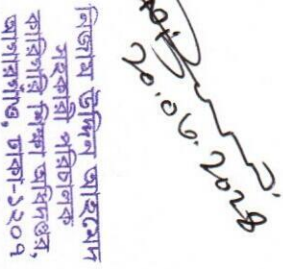 ২০.০৬.২০২৪
নিজাম উদ্দিন আহমেদ
সহকারী পরিচালক
কারিগরি শিক্ষা অধিদপ্তর,
আগারগাঁও, ঢাকা-১২০৭